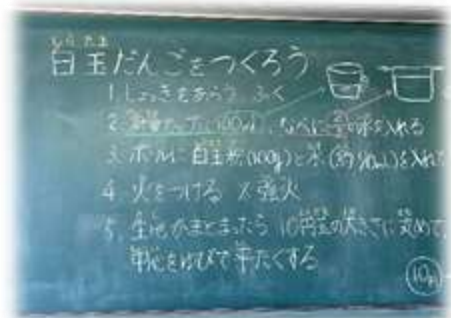 しらたま
白玉だんごをつくろう
1. しょっきをあらう ふく
2. (100ml)、なべに水を入れる
3. ボールに白玉粉(100g)と水(約90mL)を入れて
4. 火をつける ※強火
5. 生地がまとまったら 10円玉の大きさに丸めて、
中心をゆびで平たくする
10円